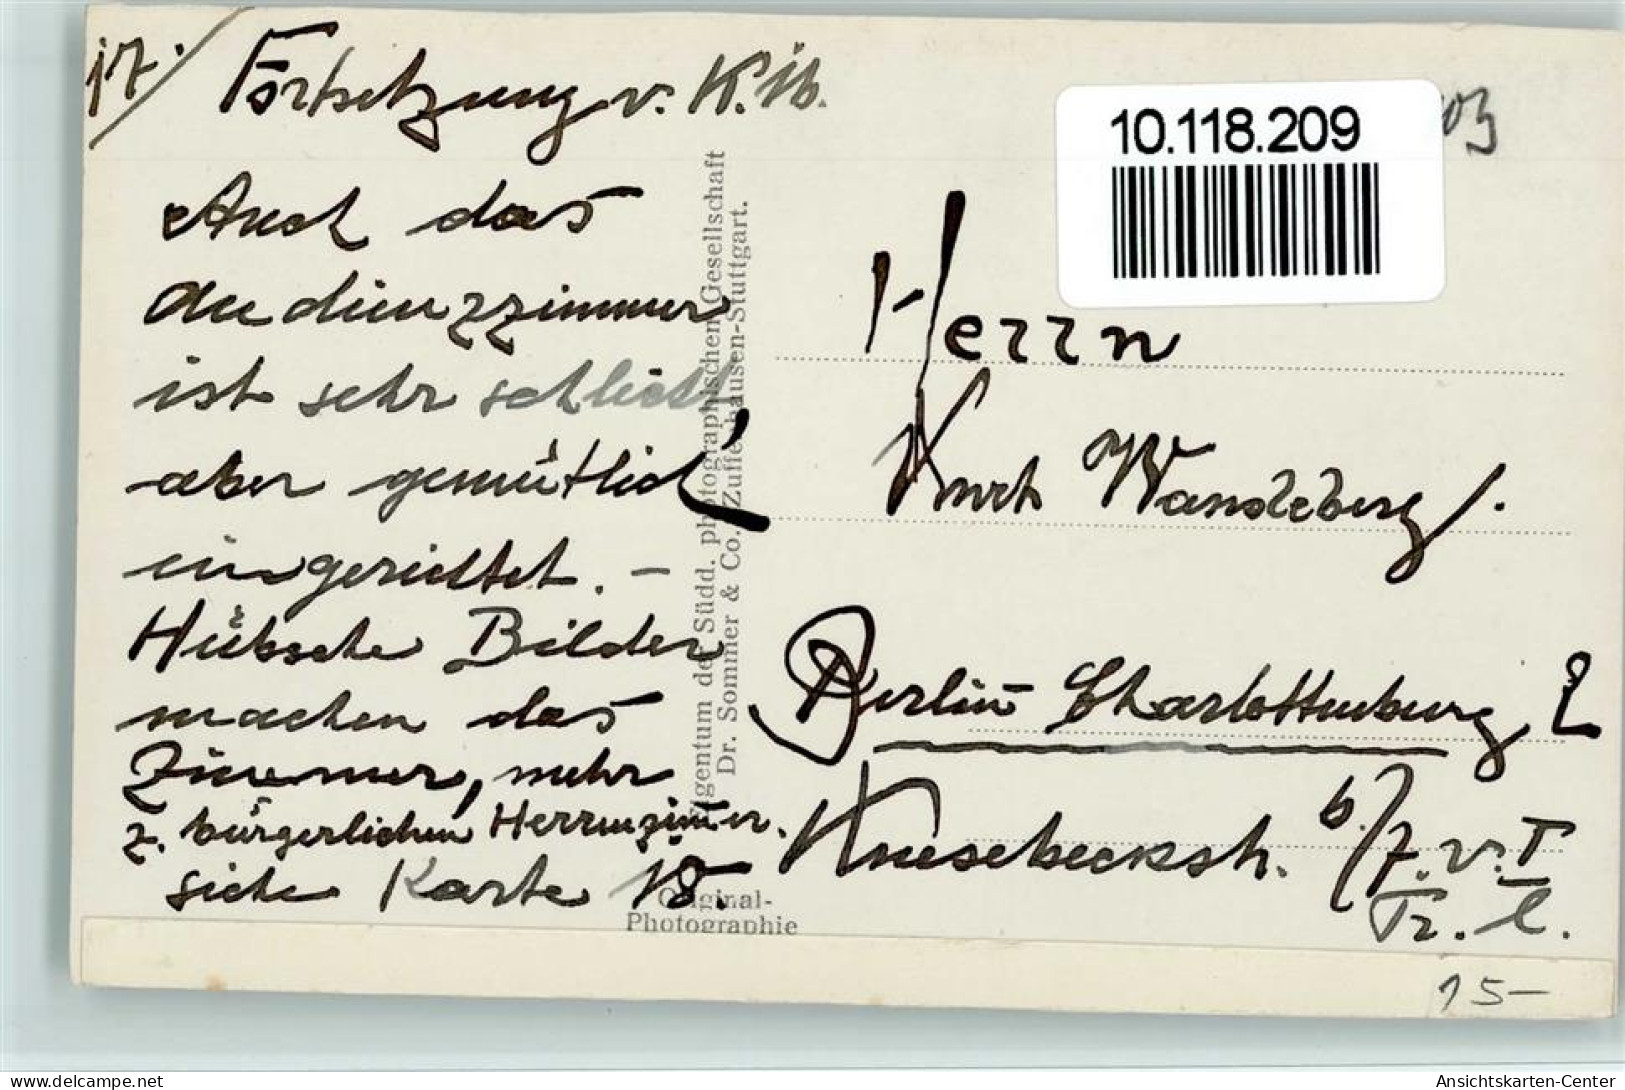 17.) Fortsetzung v. K. 16.
Auch das
Audienzzimmer
ist sehr schlicht,
aber gemütlich
eingerichtet. –
Hübsche Bilder
machen das
Zimmer, mehr
z. bürgerlichen Herrenzimmer.
siehe Karte 18.
Eigentum der Südd. photographischen Gesellschaft
Dr. Sommer & Co. Zuffenhausen-Stuttgart.
Original-
Photographie
10.118.209
03
Herrn
Kurt
Berlin Charlottenburg 2
Knesebeckstr. 6/7. v. I
Tr. l.
15–
oldthing.de
Ansichtskarten-Center